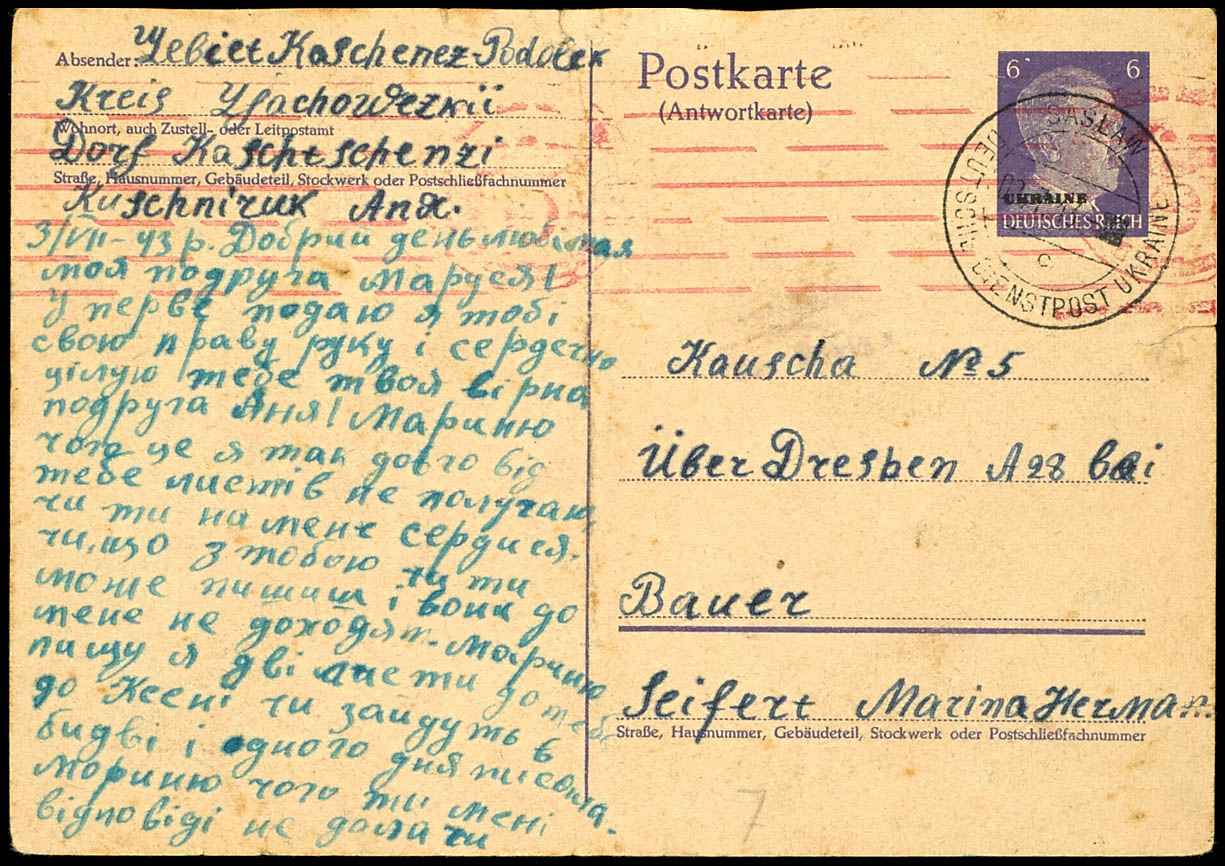 Absender: Gebiet Kaschenez-Podolsk
Kreis
Wohnort, auch Zustell- oder Leitpostamt
Dorf Kaschtschenzi
Straße, Hausnummer, Gebäudeteil, Stockwerk oder Postschließfachnummer
Kuschniruk Ana.
3/VII-43 р. Добрий день любімая
моя подруга Маруся!
У перве подаю я тобі
свою праву руку і сердечно
цілую тебе твоя вірна
подруга Аня! Мариню
чого це я так довго від
тебе листів не получаю,
чи ти на мене сердися.
чи, що з тобою чи ти
може пишиш і вони до
мене не доходят. Мариню
пишу я дві листи до тебе
до Ксені чи зайдуть в
бидві і одного дня писала.
Мориню чого ти мені
відповіді не дала чи
Postkarte
(Antwortkarte)
6 6
UKRAINE
DEUTSCHES REICH
SASLAW
DEUTSCHE DIENSTPOST UKRAINE
c
Kauscha № 5
Über Dresden A28 bei
Bauer
Seifert Marina Herman
Straße, Hausnummer, Gebäudeteil, Stockwerk oder Postschließfachnummer
7